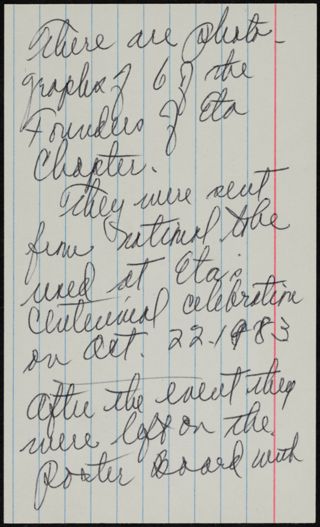 There are photo-
graphs of 6 of the
Founders of Eta
Chapter.
They were sent
from National to be
used at Eta's
Centennial celebration
on Oct. 22, 1983
After the event they
were left on the
Poster Board with